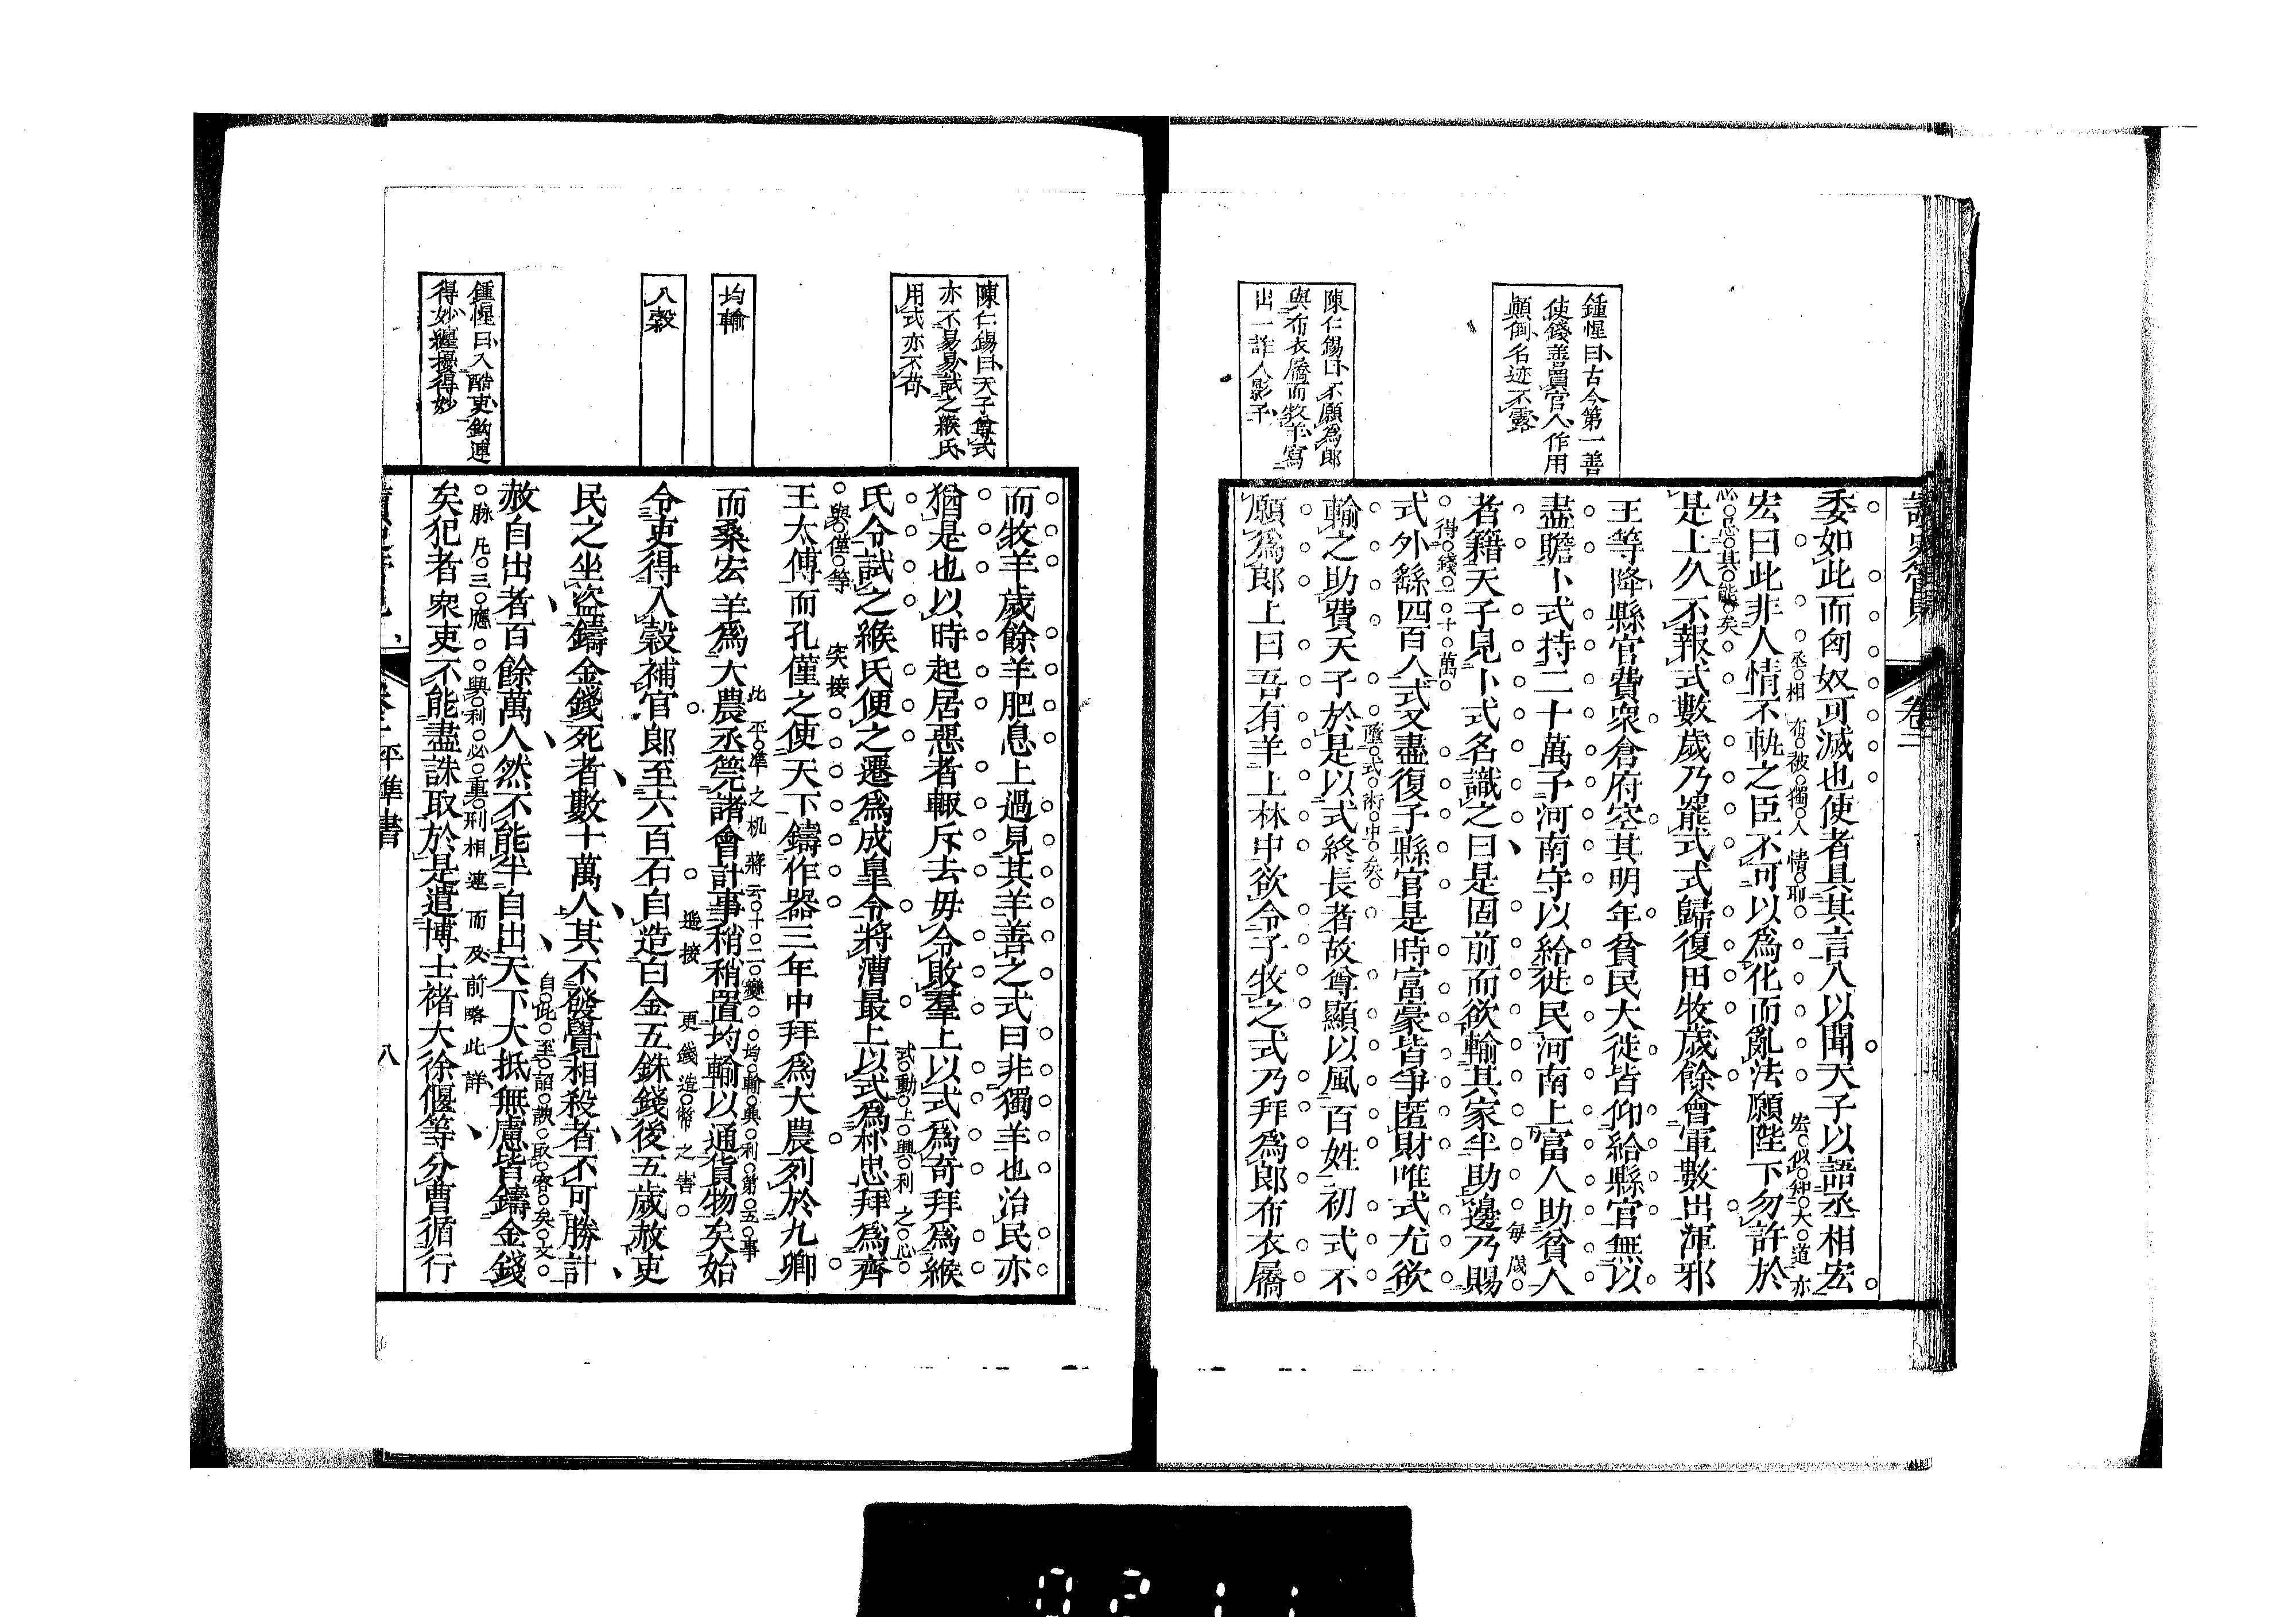 鍾惺曰古今第一善
使錢善買官人作用
顛倒名迹不露
陳仁錫曰不願為郎
與布衣屩而牧羊寫
出一詐人影子
卷二
委如此而匈奴可滅也使者具其言入以聞天子以語丞相宏
丞相布被獨人情耶
宏似紳大道亦
宏曰此非人情不軌之臣不可以為化而亂法願陛下勿許於
必忌其能矣
是上久不報式數歲乃罷式式歸復田牧歲餘會軍數出渾邪
王等降縣官費衆倉府空其明年貧民大徙皆仰給縣官無以
盡贍卜式持二十萬予河南守以給徙民河南上富人助貧人
每歲
者籍天子見卜式名識之曰是固前而欲輸其家半助邊乃賜
得錢一十萬
式外繇四百人式又盡復予縣官是時富豪皆爭匿財唯式尤欲
墮式術中矣
輸之助費天子於是以式終長者故尊顯以風百姓初式不
願為郎上曰吾有羊上林中欲令子牧之式乃拜為郎布衣屩
陳仁錫曰天子尊式
亦不易易試之緱氏
用式亦不苟
均輸
入穀
鍾惺曰入酷吏鉤連
得妙纏擾得妙
而牧羊歲餘羊肥息上過見其羊善之式曰非獨羊也治民亦
猶是也以時起居惡者輒斥去毋令敗羣上以式為奇拜為緱
式動上興利之心
氏令試之緱氏便之遷為成皐令將漕最上以式為朴忠拜為齊
與僅等
突接
王太傅而孔僅之使天下鑄作器三年中拜為大農列於九卿
此平準之机
蔣云十二變
均輸興利第五事
而桑宏羊為大農丞筦諸會計事稍稍置均輸以通貨物矣始
令吏得入穀補官郎至六百石自造白金五銖錢後五歲赦吏
遙接
更錢造幣之害
民之坐盜鑄金錢死者數十萬人其不發覺相殺者不可勝計
赦自出者百餘萬人然不能半自出天下大抵無慮皆鑄金錢
自此至詔諛取容矣文
脉凡三應
興利必重刑相連而及前略此詳
矣犯者衆吏不能盡誅取於是遣博士褚大徐偃等分曹循行
平準書
八